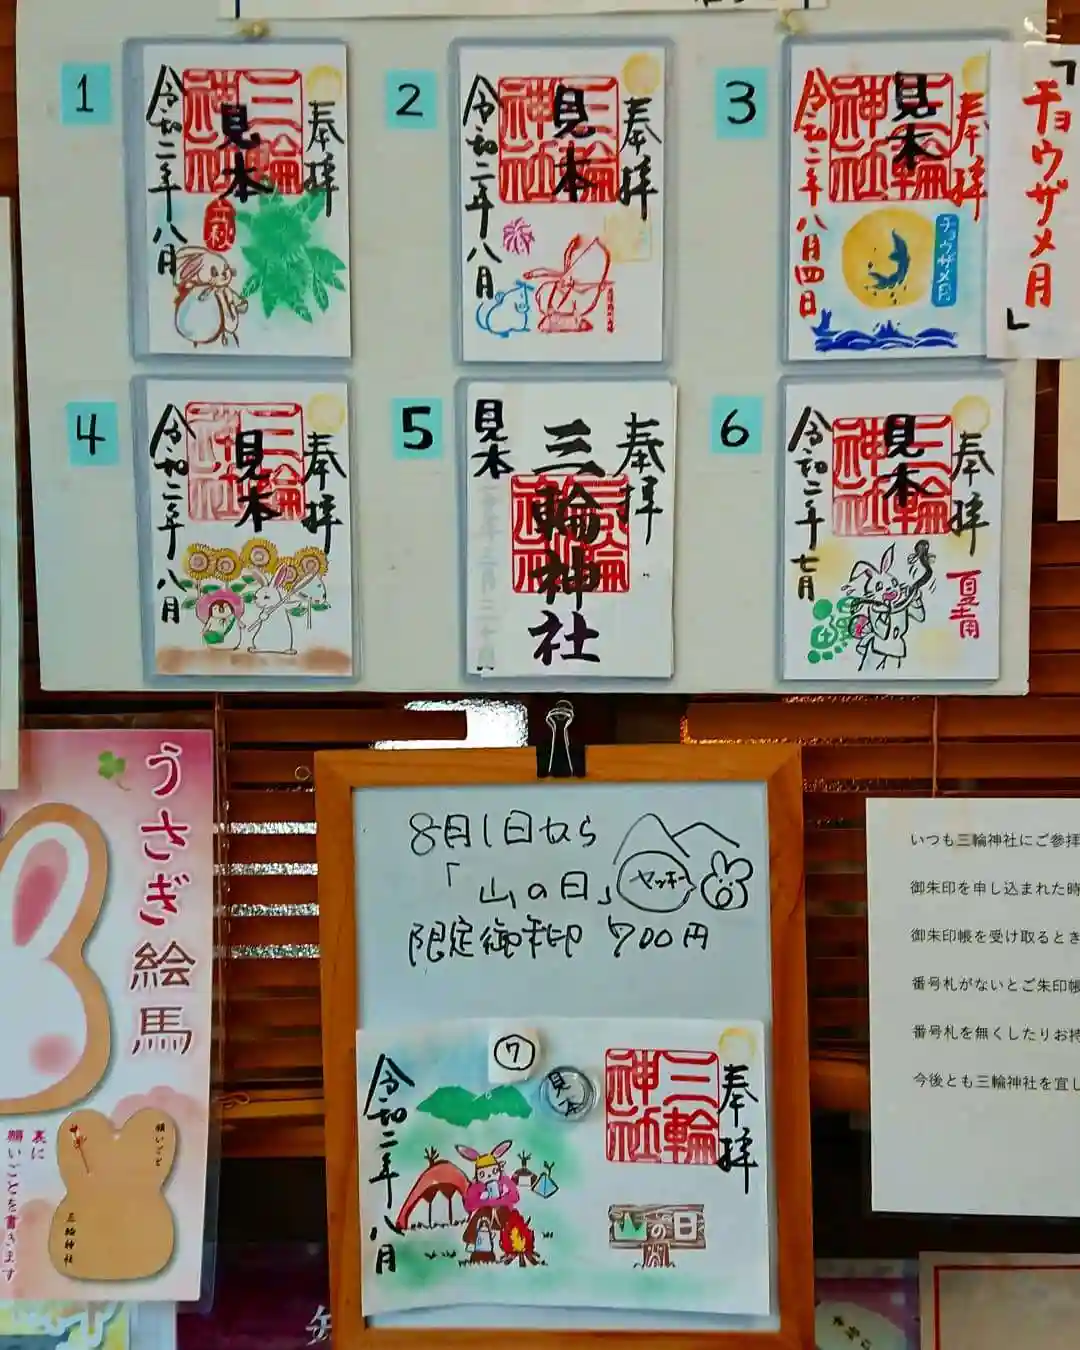 1
奉拝
三輪神社
見本
令和二年八月
2
奉拝
三輪神社
見本
令和二年八月
3
奉拝
三輪神社
見本
令和二年八月四日
チョウザメ月
「チョウザメ月」
4
奉拝
三輪神社
見本
令和二年八月
5
奉拝
三輪神社
三輪神社
見本
6
奉拝
三輪神社
見本
令和二年七月
夏土用
うさぎ絵馬
願いごと
三輪神社
裏に
願いごとを書きます
8月1日から
「山の日」
ヤッホー
限定御朱印 700円
⑦
見本
奉拝
三輪神社
令和二年八月
山の日
いつも三輪神社にご参拝
御朱印を申し込まれた時
御朱印帳を受け取るとき
番号札がないとご朱印帳
番号札を無くしたりお持
今後とも三輪神社を宜し